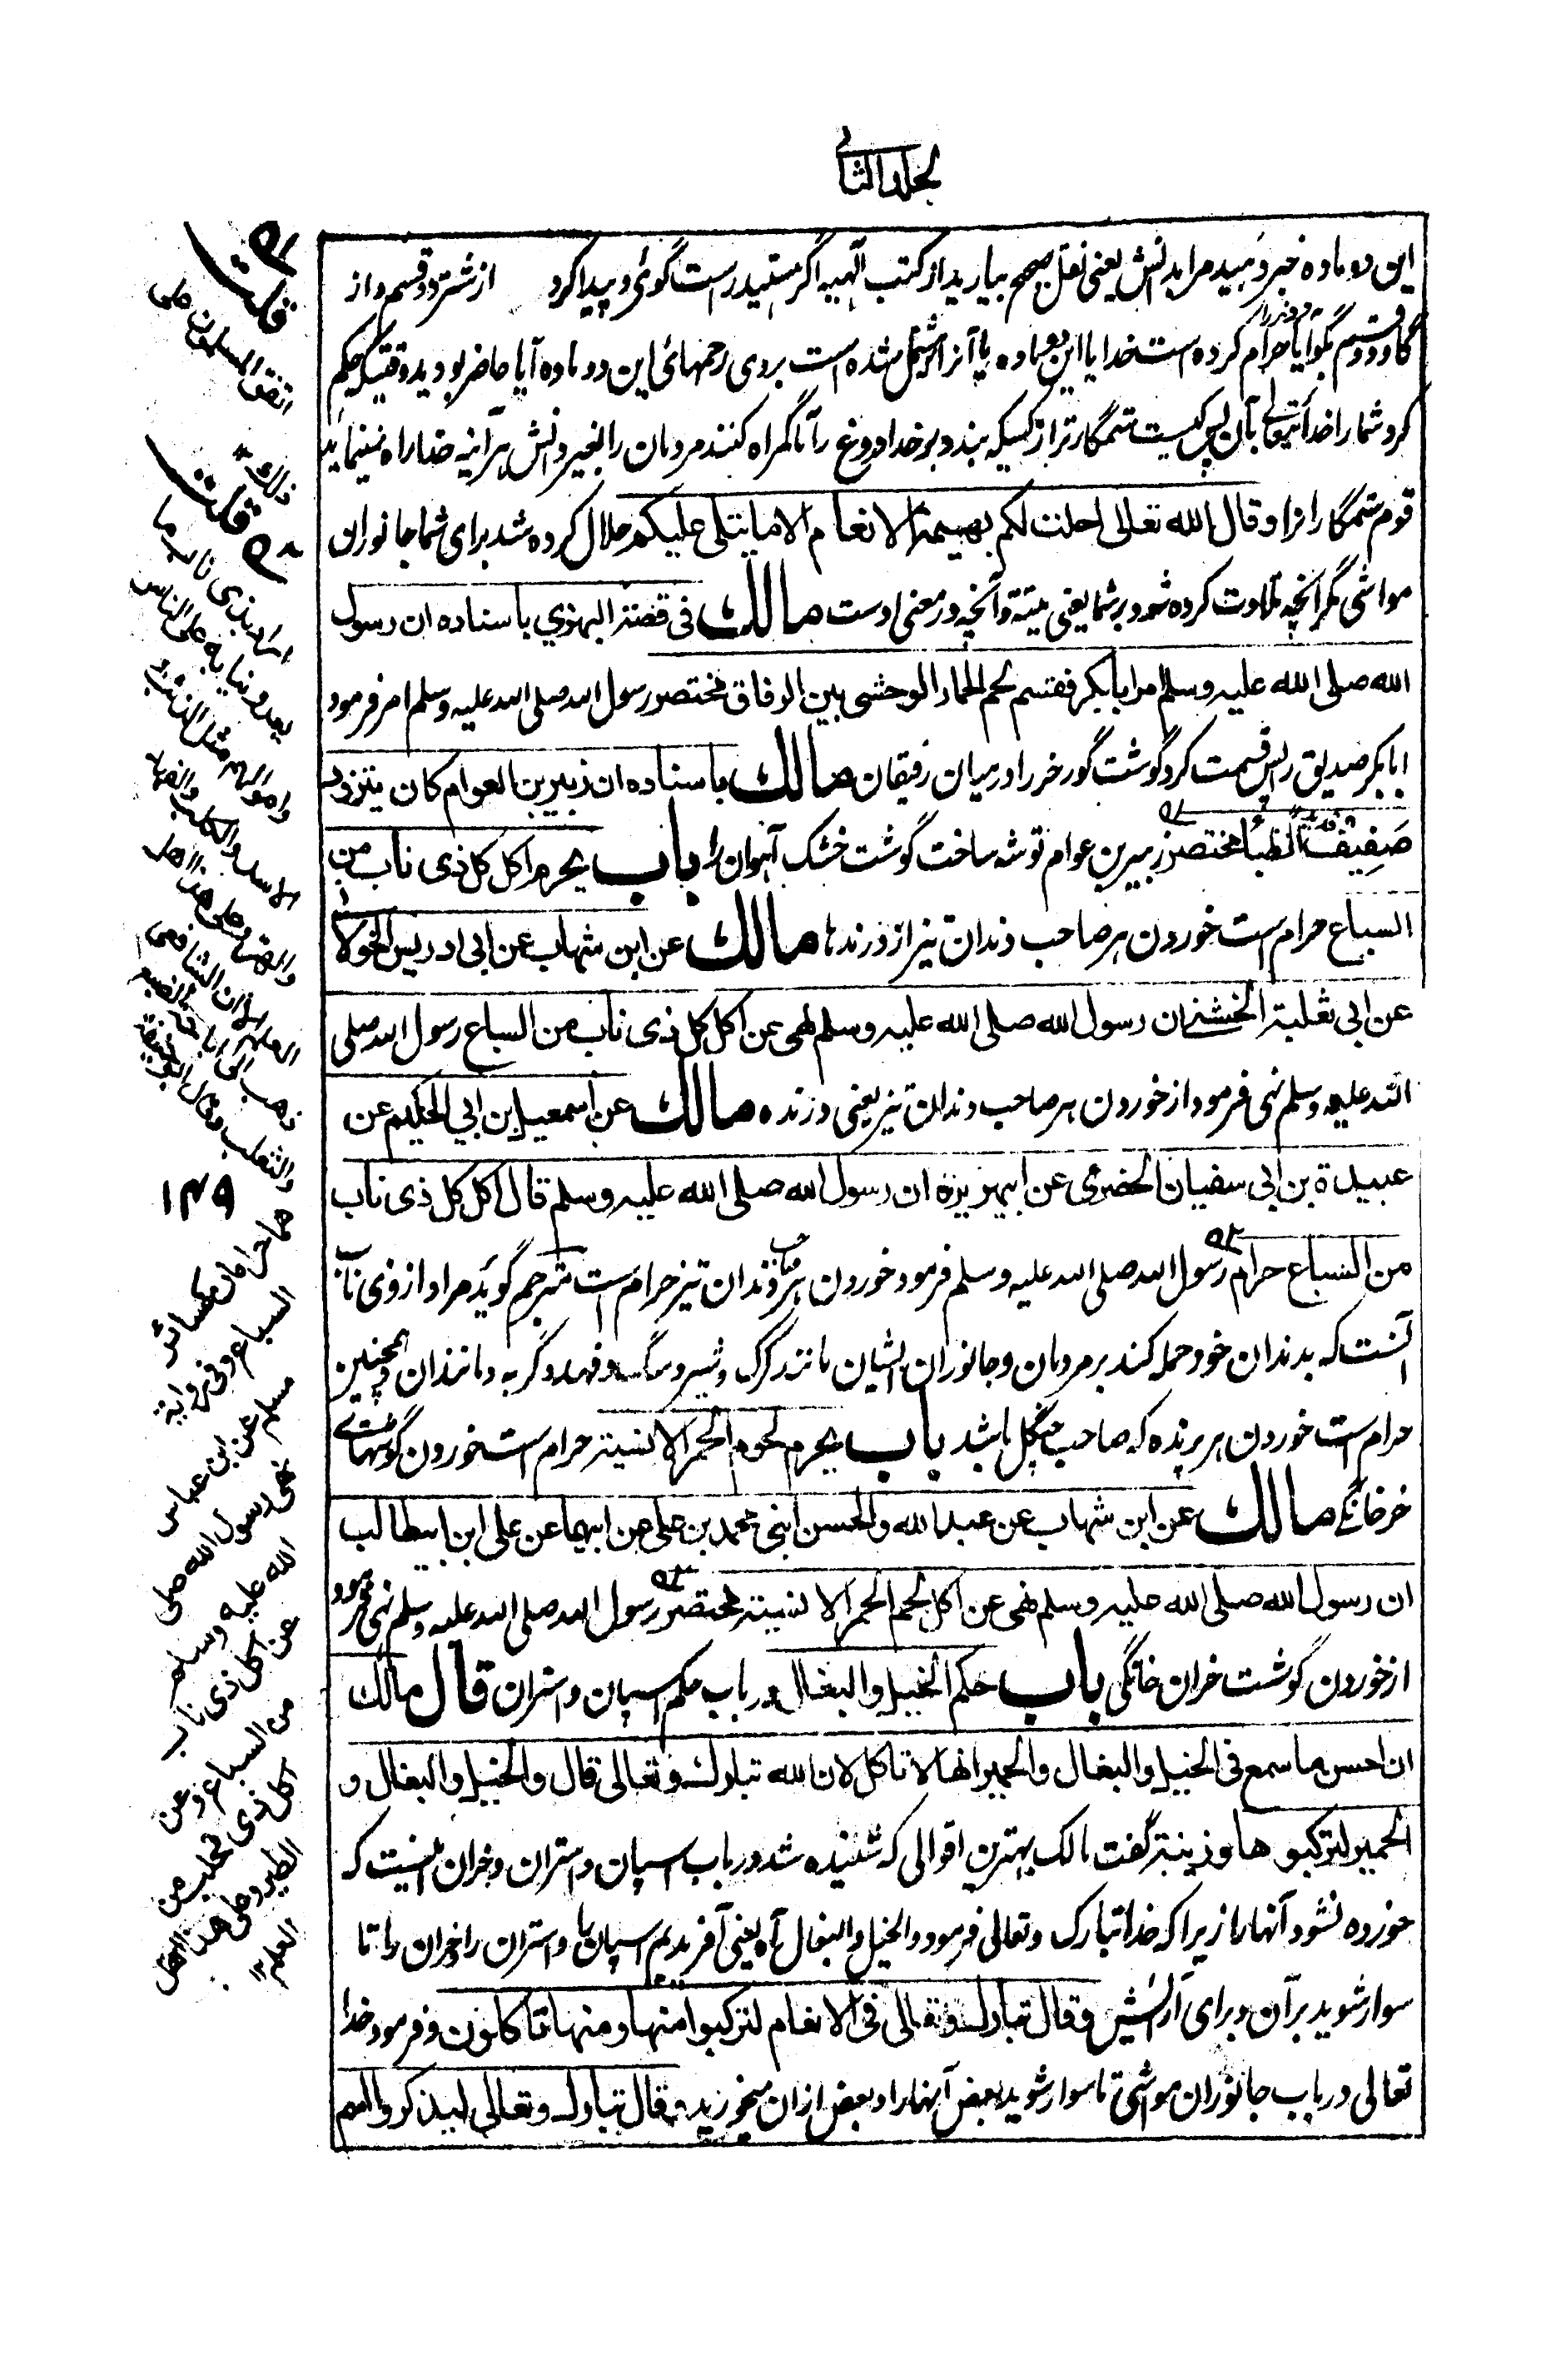 الجلد الثانی
این دو ماده خبر دهید مرا بدانش یعنی نقل صحیح بیارید از کتب آلهیه اگر هستید راست گوی و پیدا کرد از شتر دو قسم و از
گاو دو قسم بگو آیا هر دو نر را حرام کرده است خدا یا این دو ماده یا آنرا که مشتمل شده است بروی رحمهائی این دو ماده آیا حاضر بودید وقتیکه حکم
کرد شما را خدا تعالی بآن پس کیست ستمگارتر از کسیکه بندد بر خدا دروغ را تا گمراه کنند مردمان را بغیر دانش هر آئینه خدا راه نمینماید
قوم ستمگارانرا و قال الله تعالی احلت لکم بهیمة الانعام الا ما یتلی علیکم حلال کرده شد برای شما جانوران
مواشی مگر آنچه تلاوت کرده شود بر شما یعنی میتة و آنچه در معنی اوست مالك فی قصة البهزی باسناده ان رسول
الله صلی الله علیه وسلم امر ابا بکر فقسم لحم الحمار الوحشی بین الرفاق مختصر رسول الله صلی الله علیه وسلم امر فرمود
ابابکر صدیق را پس قسمت کرد گوشت گورخر را در میان رفیقان مالك باسناده ان زبیر بن العوام کان یتزود
صفیف الظباء مختصر زبیر بن عوام توشه ساخت گوشت خشک آهوان را باب یحرم اکل کل ذی ناب من
السباع حرام است خوردن هر صاحب دندان تیز از درندها مالك عن ابن شهاب عن ابی ادریس الخولانی
عن ابی ثعلبة الخشنی ان رسول الله صلی الله علیه وسلم نهی عن اکل کل ذی ناب من السباع رسول الله صلی
الله علیه وسلم نهی فرمود از خوردن هر صاحب دندان تیز یعنی درنده مالك عن اسمعیل بن ابی الحکیم عن
عبیدة بن ابی سفیان الحضرمی عن ابیهریرة ان رسول الله صلی الله علیه وسلم قال اکل کل ذی ناب
من السباع حرام رسول الله صلی الله علیه وسلم فرمود خوردن هر صاحب دندان تیز حرام است مترجم گوید مراد از ذی ناب
آنست که بدندان خود حمله کند بر مردمان و جانوران ایشان مانند گرگ و شیر و سگ و فهد و گربه و مانند آن و همچنین
حرام است خوردن هر پرنده که صاحب چنگل باشد باب یحرم لحوم الحمر الانسیة حرام است خوردن گوشتهائے
خر خانگے مالك عن ابن شهاب عن عبد الله والحسن ابنی محمد بن علی عن ابیهما عن علی ابن ابیطالب
ان رسول الله صلی الله علیه وسلم نهی عن اکل لحم الحمر الانسیة مختصر رسول الله صلی الله علیه وسلم نهی فرمود
از خوردن گوشت خران خانگی باب حکم الخیل والبغال در باب حکم اسپان و استران قال مالك
ان احسن ما سمع فی الخیل والبغال والحمیر انها لا تاکل لان الله تبارك وتعالی قال والخیل والبغال و
الحمیر لترکبوها وزینة گفت مالک بهترین اقوالی که شنیده شد در باب اسپان و استران و خران اینست که
خورده نشود آنها را زیرا که خدا تبارک وتعالی فرمود والخیل والبغال آه یعنی آفریدیم اسپان را و استران را و خران را تا
سوار شوید بر آن و برای آرایش و قال تبارك وتعالی فی الانعام لترکبوا منها ومنها تاکلون و فرمود خدا
تعالی در باب جانوران مواشی تا سوار شوید بعض آنها را و بعض ازان میخورید و قال تبارك وتعالی لیذکروا اسم
قلت
اتفق المسلمون علی
ذلك
قلت
اراد بذی ناب ما
یعدو بنابه علی الناس
واموالهم مثل الذئب و
الاسد والکلب والفهد
والهرة وعلی هذا اهل
العلم الا ان الشافعی
ذهب الی اباحة الضبع
والثعلب وقال ابو حنیفة
۱۴۹
هما حرامان کسائر
السباع وفی روایة
مسلم عن ابن عباس
نهی رسول الله صلی
الله علیه وسلم
عن اکل ذی ناب
من السباع وعن
اکل ذی مخلب من
الطیر وعلی هذا اهل
العلم